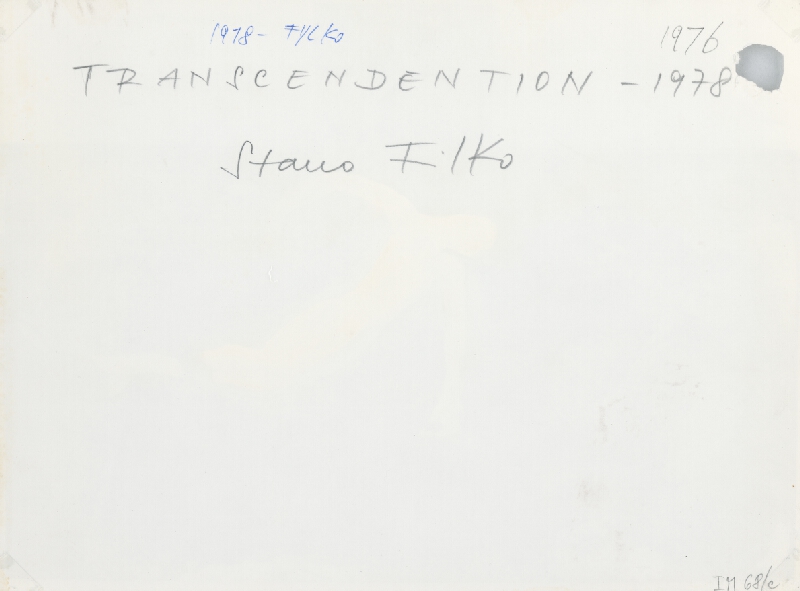 1978- FYLKO
1976
TRANSCENDENTION - 1978
Stano FilKo
IM 68/c